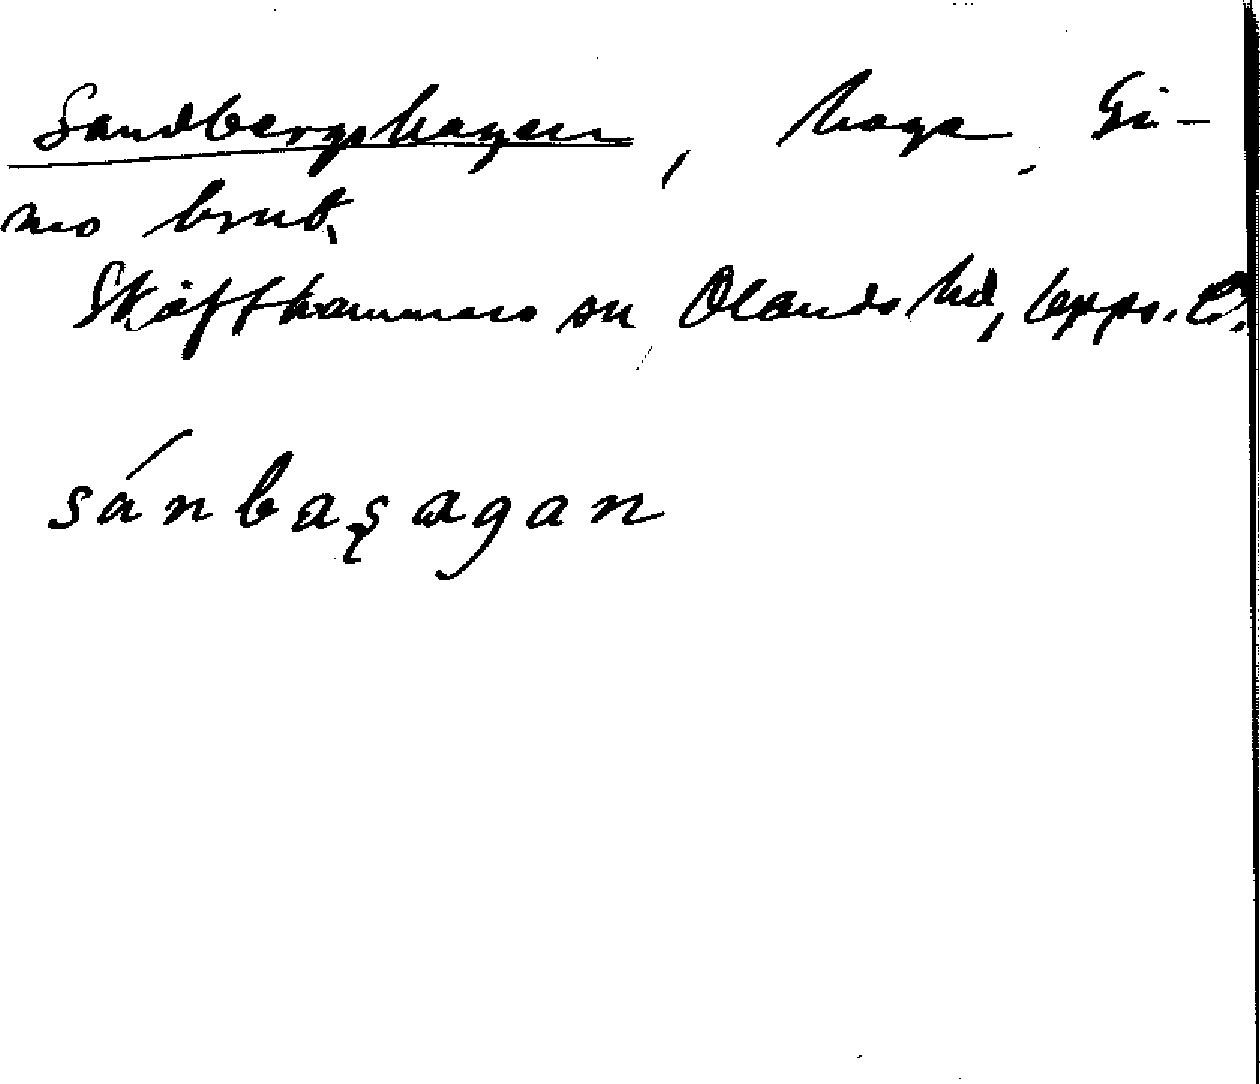 Sandbergshagen, hage, Gi-
mo bruk,
Skäfthammars sn Olands hd, Upps. l.
sánbaşagan